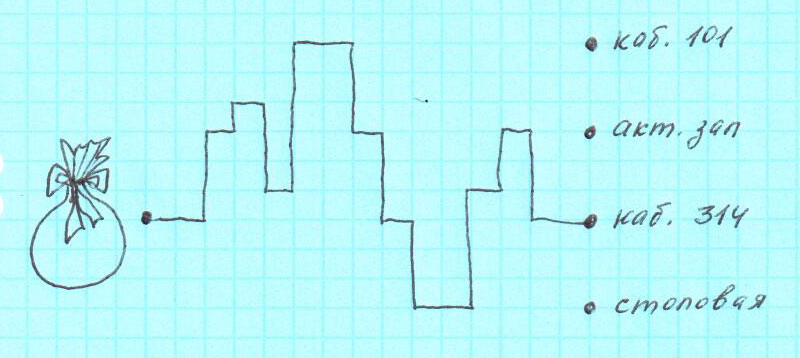 каб. 101
акт. зал
каб. 314
столовая